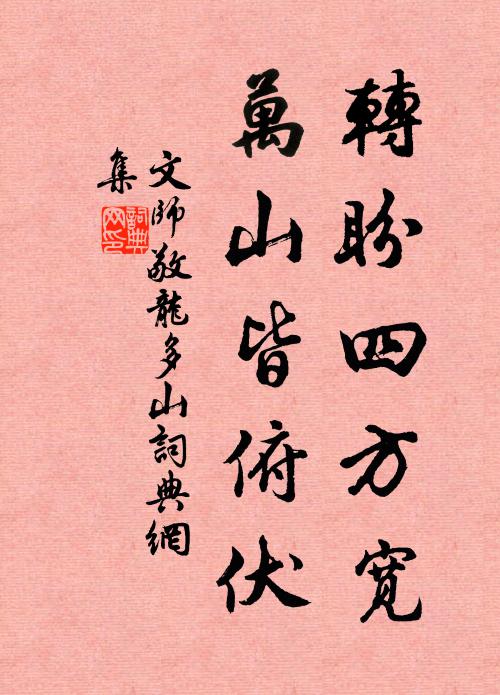 轉盼四方寬
萬山皆俯伏
文師敬龍多山詞典網
集
詞典網印